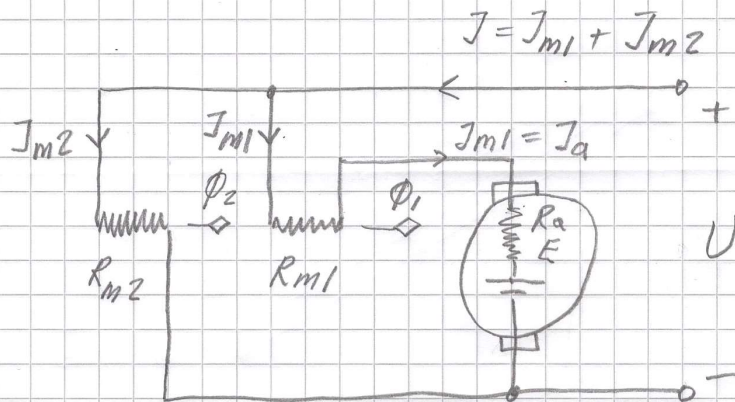 J = Jm1 + Jm2
+
Jm2
Jm1
Jm1 = Ja
ϕ2
ϕ1
Ra
E
U
Rm2
Rm1
−